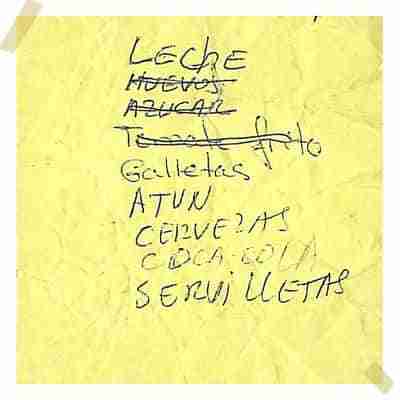 LEchE
HUEVOS
AZUCAR
Tomate frito
Galletas
ATUN
CERVEZAS
COCA-COLA
SERVILLETAS